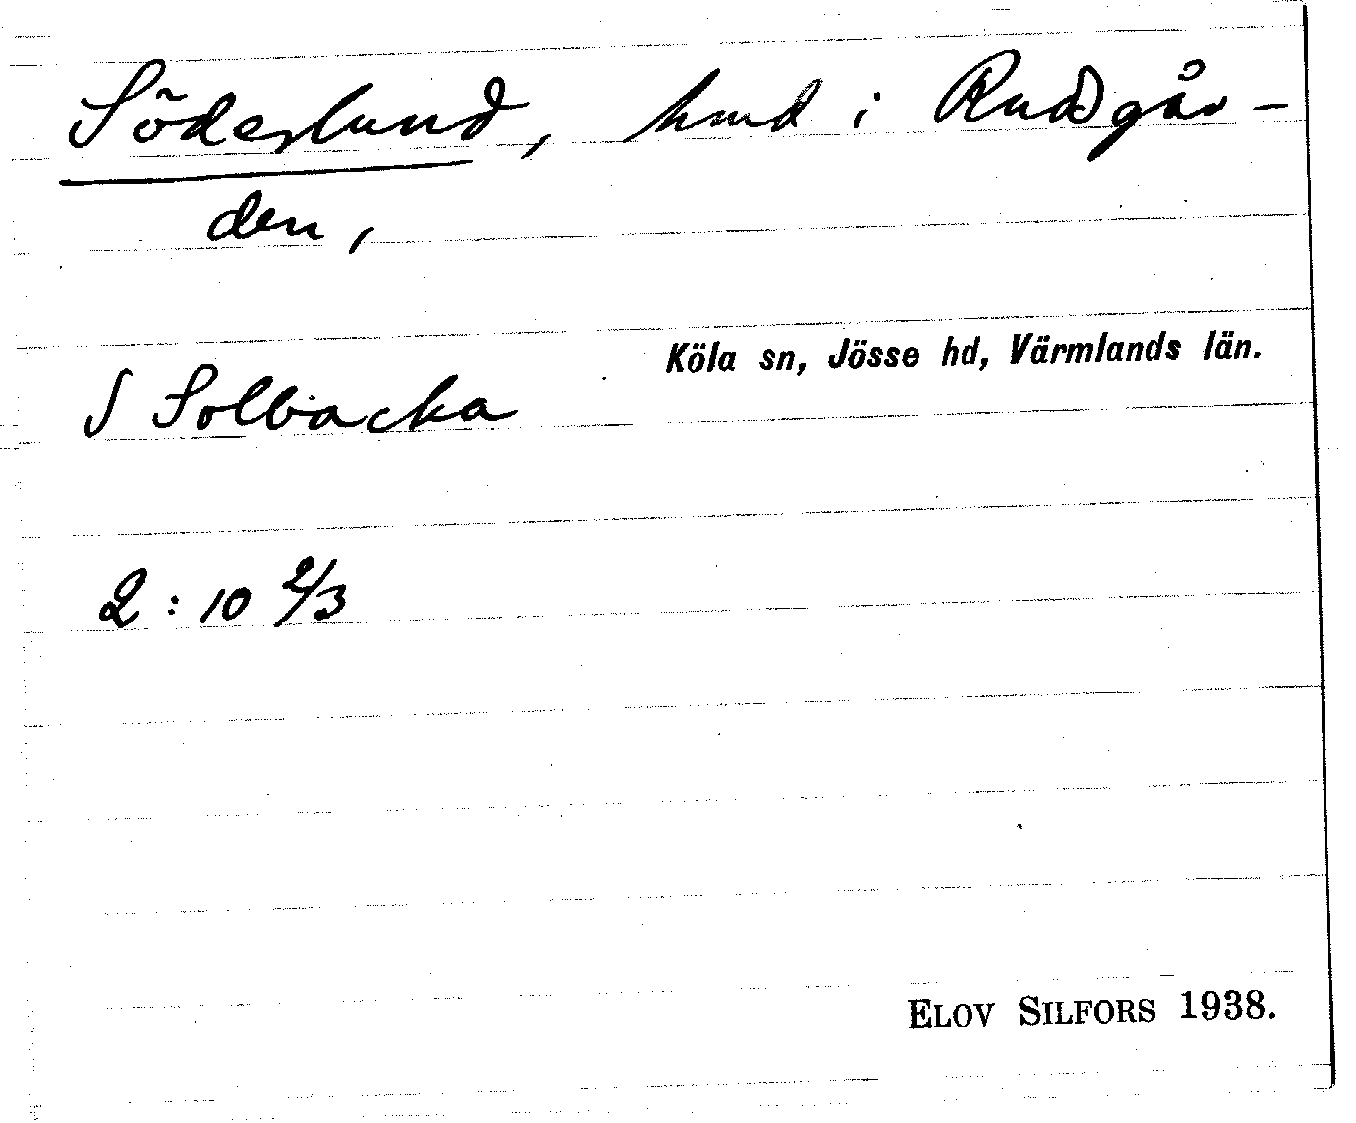 Söderlund, hmd i Rudsgår-
den,
Köla sn, Jösse hd, Värmlands län.
S Solbacka
2:10 2/3
ELOV SILFORS 1938.